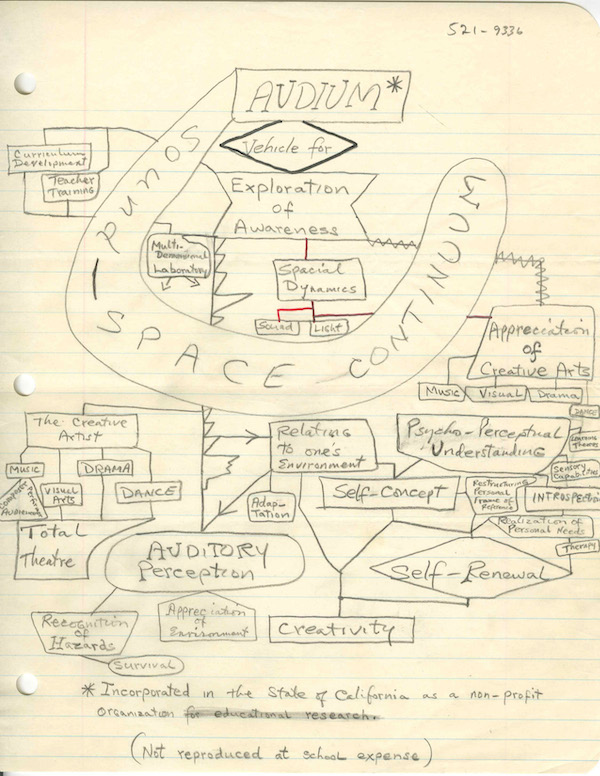 521-9336
AUDIUM*
Vehicle for
Exploration
of
Awareness
SOUND - SPACE CONTINUUM
Curriculum
Development
Teacher
Training
Multi-
Demensional
Laboratory
Spacial
Dynamics
Sound
Light
Appreciation
of
Creative Arts
Music
Visual
Drama
DANCE
The Creative
Artist
MUSIC
DRAMA
VISUAL
ARTS
DANCE
Total
Theatre
Relating
to one's
Environment
Adap-
tation
Psycho-Perceptual
Understanding
Sensory
Capabilities
Self-Concept
Restructuring
Personal
Frame of
Reference
INTROSPECTION
Realization of
Personal Needs
Therapy
AUDITORY
Perception
Self-Renewal
Recognition
of
Hazards
Survival
Appreciation
of
Environment
Creativity
* Incorporated in the State of California as a non-profit
organization for educational research.
(Not reproduced at school expense)